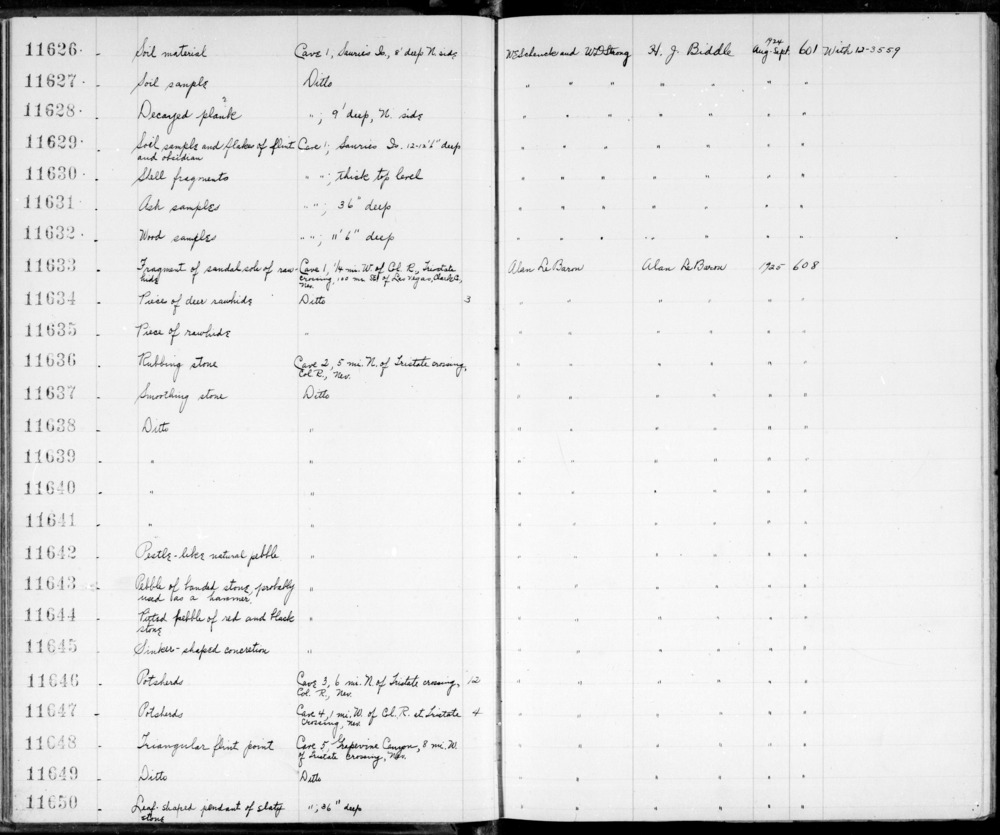 11626 - Soil material Cave 1, Sauries Is., 8' deep N. side W E Schenck and W D Strong H. J. Biddle 1924 Aug-Sept. 601 With 12-3559
11627 - Soil sample Ditto " " " " " " "
11628 - Decayed plank ? " ; 9' deep, N. side " " " " " " "
11629 - Soil sample and flakes of flint Cave 1; Sauries Is. 12-12'6" deep " " " " " " "
and obsidian
11630 - Shell fragments " " ; thick top level " " " " " " "
11631 - Ash samples " " ; 36" deep " " " " " " "
11632 - Wood samples " " ; 11'6" deep " " " " " " "
11633 - Fragment of sandal sole of raw- Cave 1, 1/4 mi. W. of Col. R., Tristate Alan Le Baron Alan Le Baron 1925 608
hide crossing, 100 mi. SE of Las Vegas, Clark Co.,
Nev.
11634 - Piece of deer rawhide Ditto 3 " " " " " "
11635 - Piece of rawhide " " " " " " "
11636 - Rubbing stone Cave 2, 5 mi. N. of Tristate crossing, " " " " " "
Col. R., Nev.
11637 - Smoothing stone Ditto " " " " " "
11638 - Ditto " " " " " " "
11639 - " " " " " " " "
11640 - " " " " " " " "
11641 - " " " " " " " "
11642 - Pestle-like natural pebble " " " " " " "
11643 - Pebble of banded stone, probably " " " " " " "
used as a hammer.
11644 - Pitted pebble of red and black " " " " " " "
stone
11645 - Sinker-shaped concretion " " " " " " "
11646 - Potsherds Cave 3, 6 mi. N. of Tristate crossing, 12 " " " " " "
Col. R., Nev.
11647 - Potsherds Cave 4, 1 mi. W. of Col. R. at Tristate 4 " " " " " "
crossing, Nev.
11648 - Triangular flint point Cave 5, Grapevine Canyon, 8 mi. W. " " " " " "
of Tristate crossing, Nev.
11649 - Ditto Ditto " " " " " "
11650 - Leaf-shaped pendant of slaty " ; 36" deep " " " " " "
stone